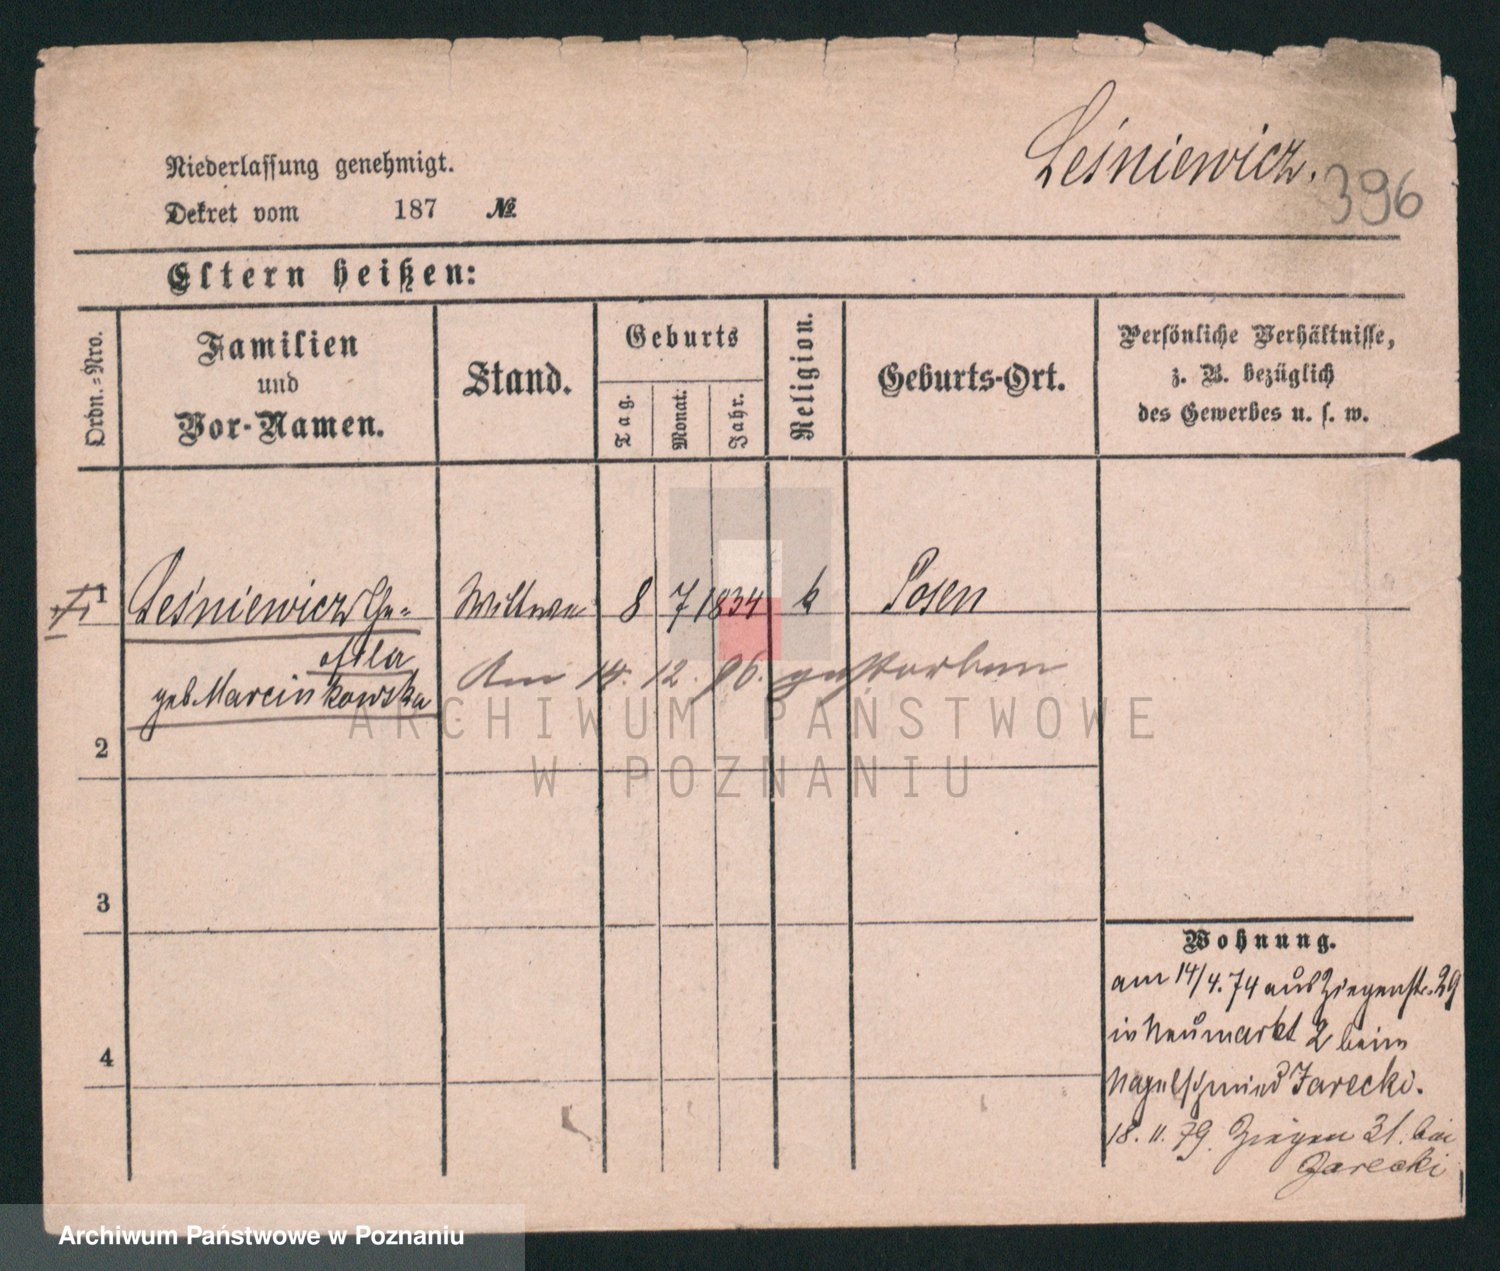 Leśniewicz.
396
Niederlassung genehmigt.
Dekret vom 187 №
Eltern heißen:
Ordn.-Nro.
Familien
und
Vor-Namen.
Stand.
Geburts
Tag.
Monat.
Jahr.
Religion.
Geburts-Ort.
Persönliche Verhältnisse,
z. B. bezüglich
des Gewerbes u. s. w.
1 Leśniewicz The= Wittwe 8 7 1834 k Posen
ofila
geb. Marcinkowska
Am 14. 12. 96. gestorben
2
3
4
Wohnung.
am 14/4. 74 aus Ziegenstr. 29
in Neumarkt 2 beim
Nagelschmied Jarecki.
18. 11. 79. Ziegen 31. bei
Jarecki
ARCHIWUM PAŃSTWOWE
W POZNANIU
Archiwum Państwowe w Poznaniu